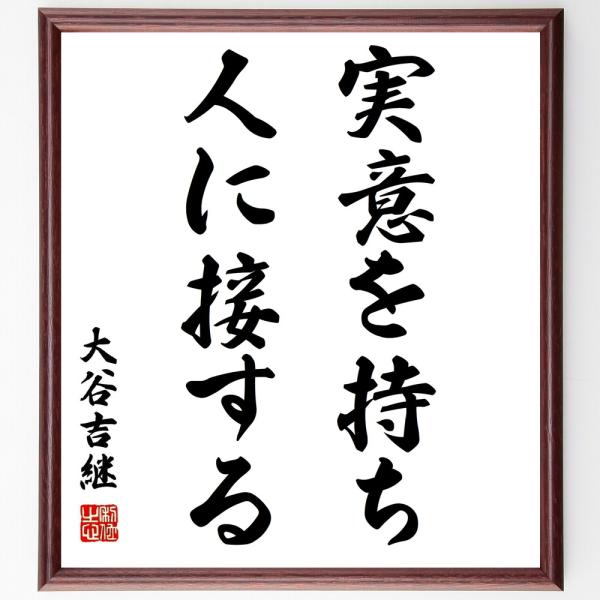 実意を持ち
人に接する
大谷吉継